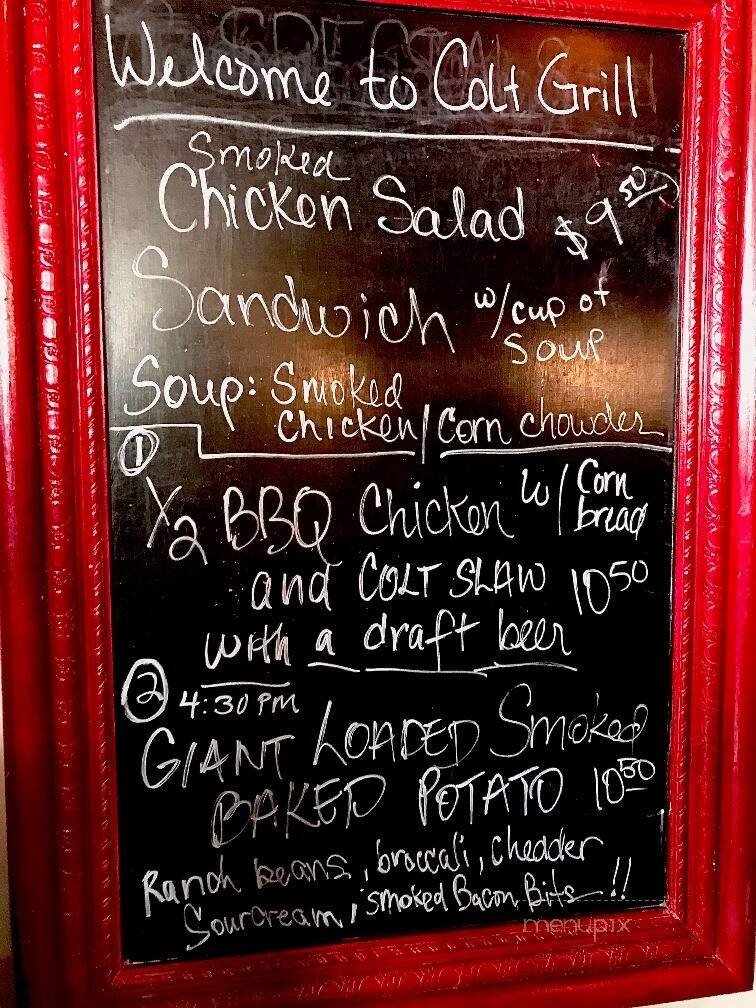 Welcome to Colt Grill
Smoked
Chicken Salad $9 50
Sandwich w/cup of
Soup
Soup: Smoked
Chicken/Corn chowder
1
1/2 BBQ Chicken w/Corn
bread
and COLT SLAW 10 50
with a draft beer
2 4:30 PM
GIANT LOADED Smoked
BAKED POTATO 10 50
Ranch beans, broccali, chedder
Sourcream, smoked Bacon Bits !!
menupix